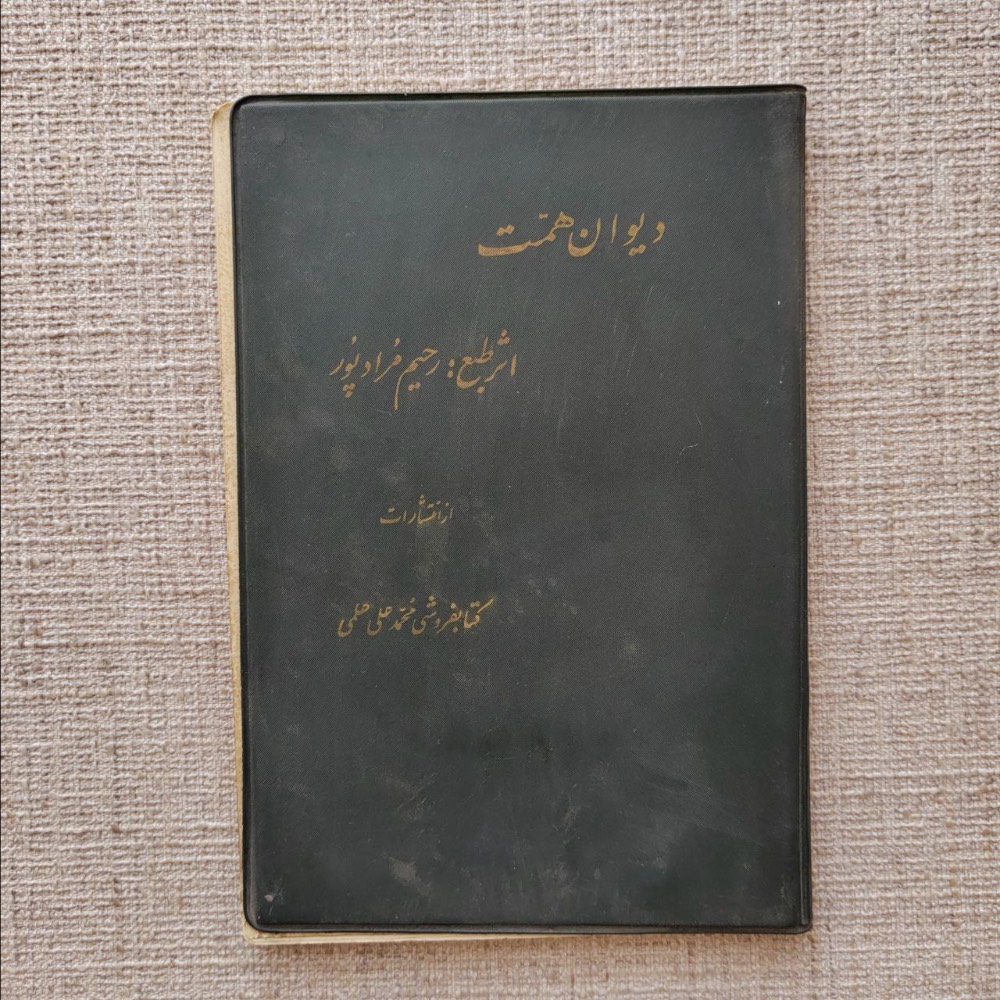 دیوان همّت
اثر طبع : رحیم مُرادپُور
از انتشارات
کتابفروشی محمّد علی علمی